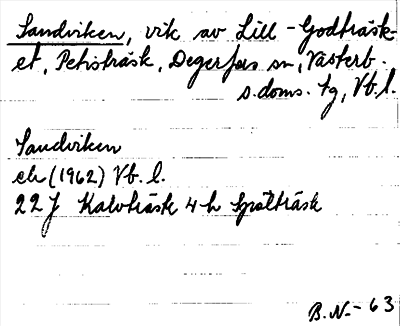 Sandviken, vik av Lill-Godträsk-
et, Petisträsk, Degerfors sn, Västerb.
s. doms. tg, Vb. l.
Sandviken
ek (1962) Vb. l.
22 J Kalvträsk 4 h
B.N.-63